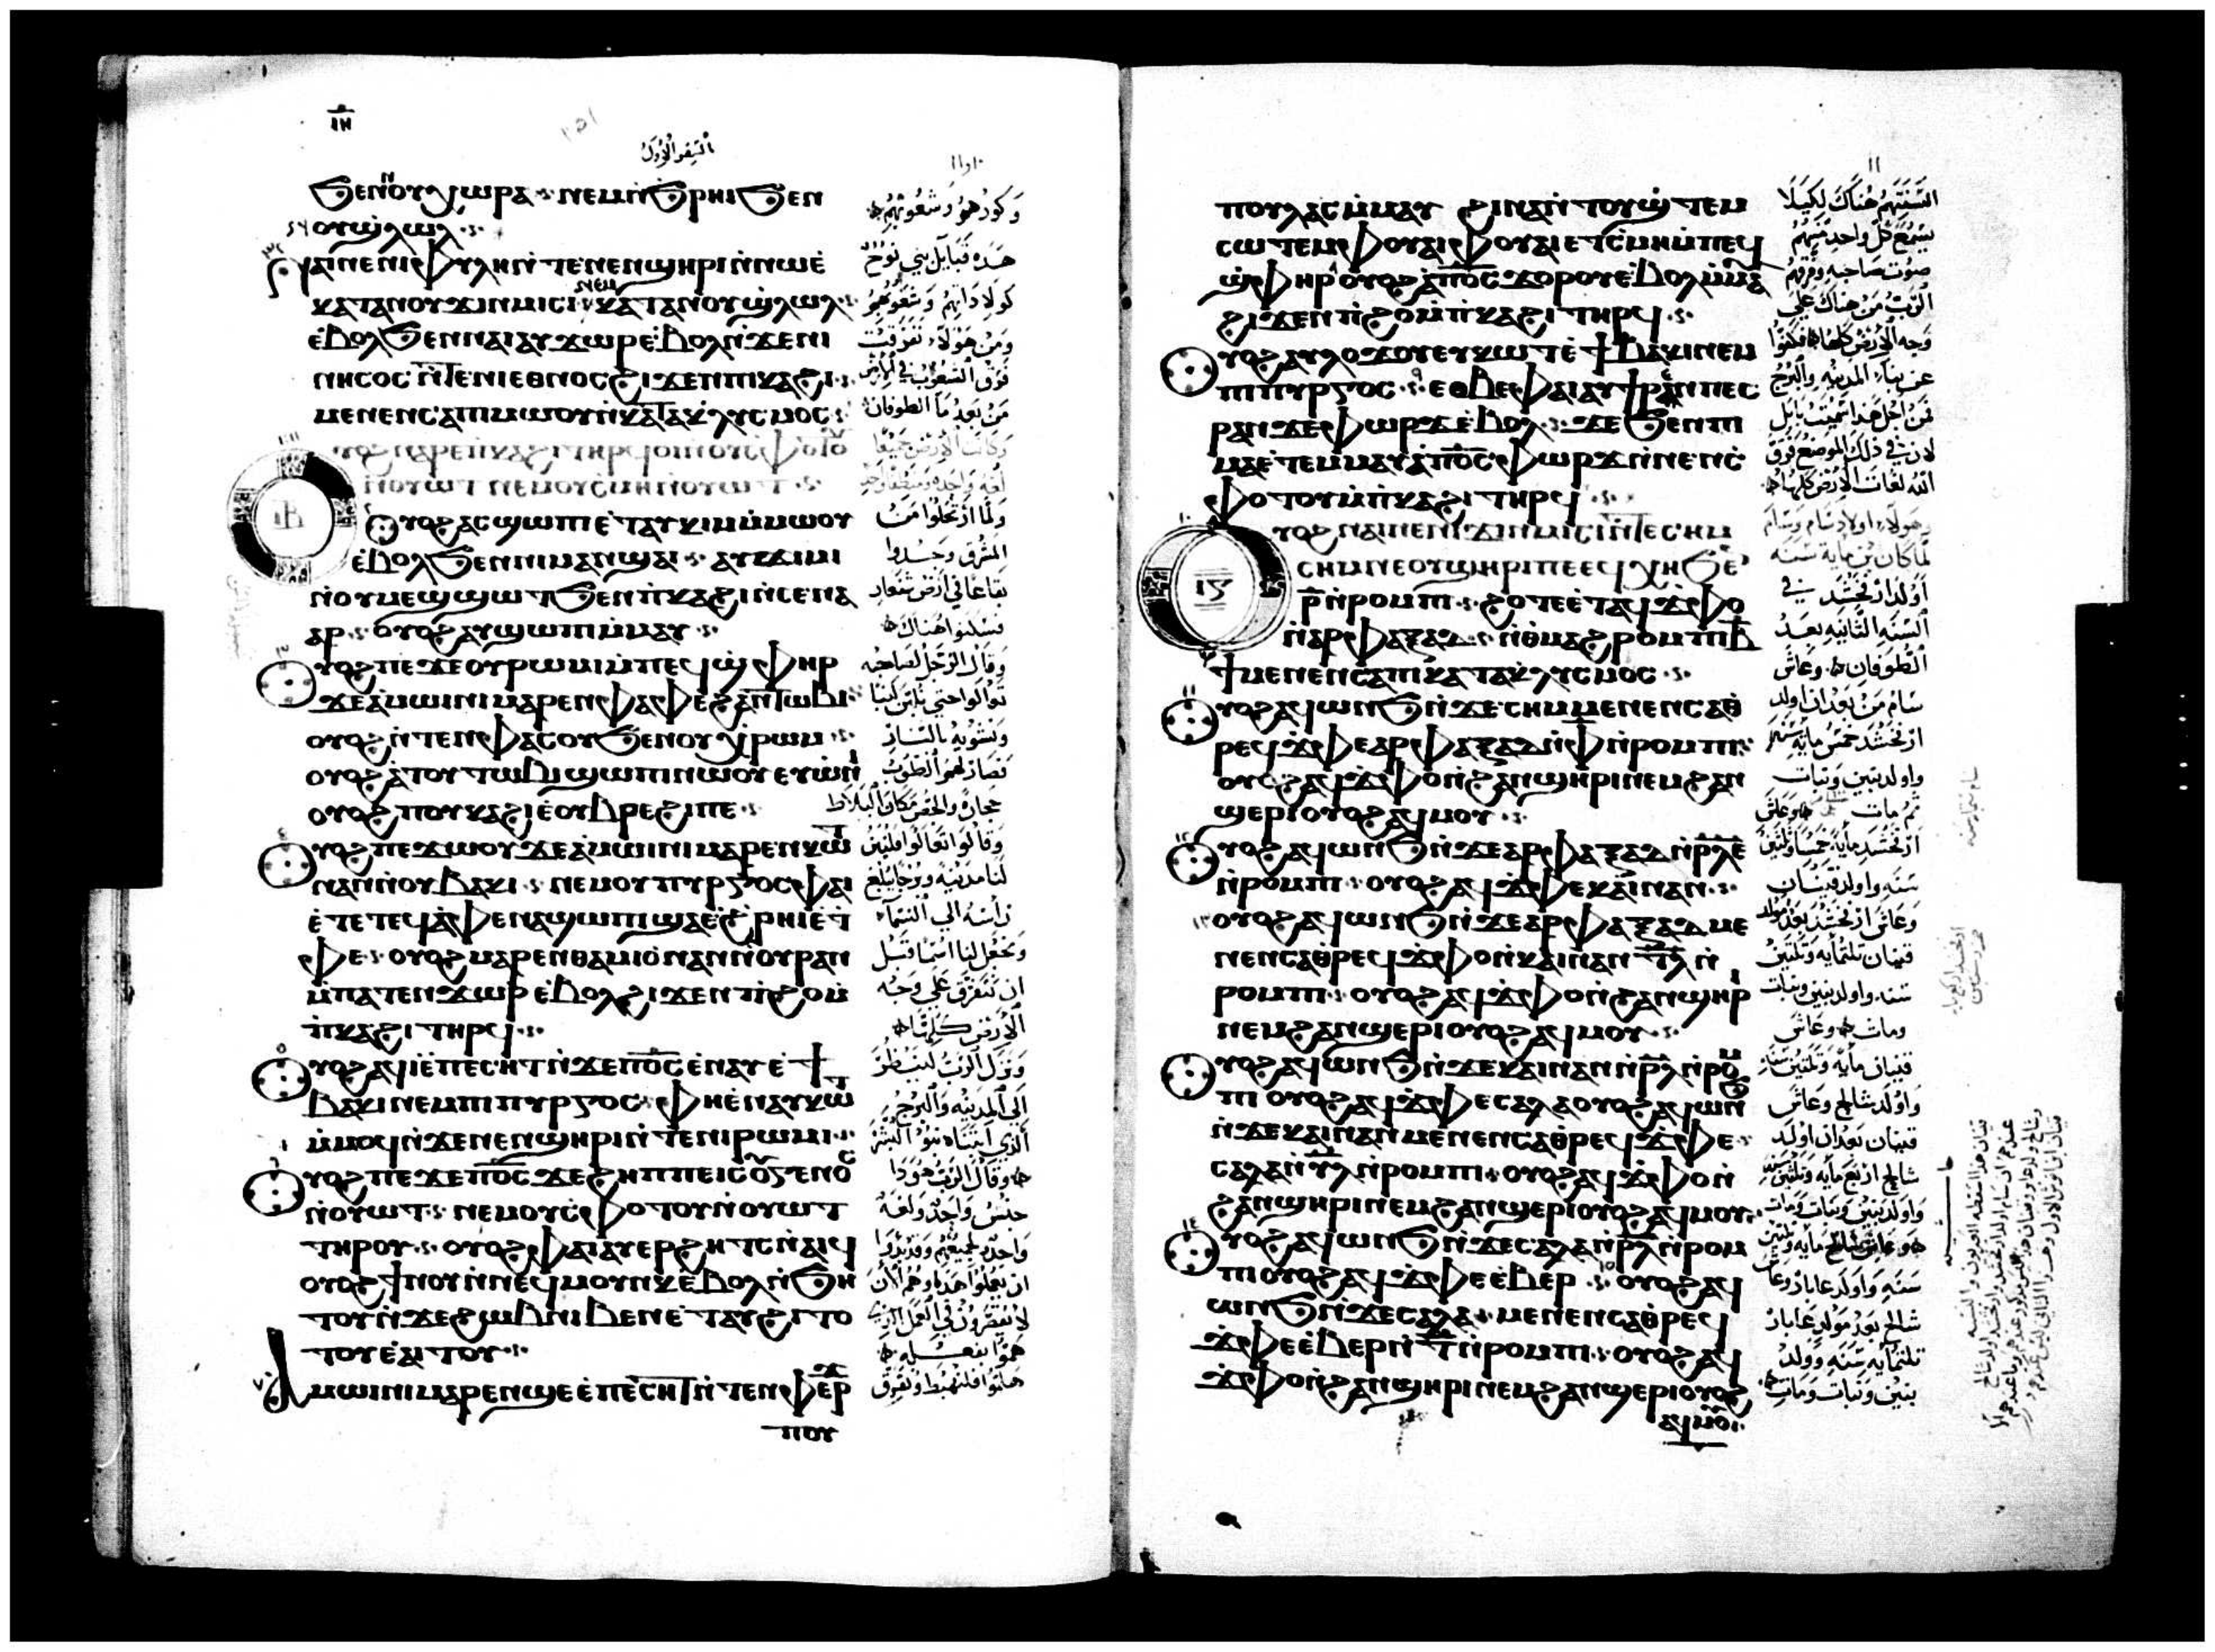 ⲓⲏ
السفر الاول
ϧⲉⲛⲛⲟⲩⲭⲱⲣⲁ ⲛⲉⲙⲛ̀ϧⲣⲏⲓϧⲉⲛ
ⲟⲩϣ̀ⲗⲱⲗ
ⲛⲁⲓⲛⲉⲛⲓⲫⲩⲗⲏⲛ̀ⲧⲉⲛⲉⲛϣⲏⲣⲓⲛ̀ⲛⲱⲉ̀
ⲕⲁⲧⲁⲛⲟⲩϫⲓⲛⲙⲓⲥⲓ ⲛⲉⲙ ⲕⲁⲧⲁⲛⲟⲩϣ̀ⲗⲱⲗ
ⲉ̀ⲃⲟⲗϧⲉⲛⲛⲁⲓⲁⲩϫⲱⲣⲉ̀ⲃⲟⲗⲛ̀ϫⲉⲛⲓ
ⲛⲏⲥⲟⲥⲛ̀ⲧⲉⲛⲓⲉⲑⲛⲟⲥϩⲓϫⲉⲛⲡⲓⲕⲁϩⲓ
ⲙⲉⲛⲉⲛⲥⲁⲡⲓⲙⲱⲟⲩⲛ̀ⲕⲁⲧⲁⲕⲗⲩⲥⲙⲟⲥ
ⲟⲩⲟϩⲛⲁⲣⲉⲡ̀ⲕⲁϩⲓⲧⲏⲣϥⲟⲓⲛ̀ⲟⲩⲥ̀ⲫⲟⲧⲟⲩ
ⲛ̀ⲟⲩⲱⲧ ⲛⲉⲙⲟⲩⲥ̀ⲙⲏⲛ̀ⲟⲩⲱⲧ
ⲓⲃ
ⲟⲩⲟϩⲁⲥϣⲱⲡⲓⲉ̀ⲧⲁⲩⲕⲓⲙⲙ̀ⲙⲱⲟⲩ
ⲉ̀ⲃⲟⲗϧⲉⲛⲛⲓⲙⲁⲛϣⲁⲓ ⲁⲩϫⲓⲙⲓ
ⲛ̀ⲟⲩⲙⲉϣϣⲱⲧϧⲉⲛⲡ̀ⲕⲁϩⲓⲛ̀ⲥⲉⲛⲁ
ⲁⲣ ⲟⲩⲟϩⲁⲩϣⲱⲡⲓⲙ̀ⲙⲁⲩ
ⲟⲩⲟϩⲡⲉϫⲉⲟⲩⲣⲱⲙⲓⲙ̀ⲡⲉϥϣ̀ⲫⲏⲣ
ϫⲉⲁ̀ⲙⲱⲓⲛⲓⲙⲁⲣⲉⲛⲫⲁⲫⲉϩⲁⲛⲧⲱⲃⲓ
ⲟⲩⲟϩⲛ̀ⲧⲉⲛⲫⲁⲥⲟⲩϧⲉⲛⲟⲩⲭⲣⲱⲙ
ⲟⲩⲟϩⲁ̀ⲧⲟⲩⲧⲱⲃⲓϣⲱⲡⲓⲛⲱⲟⲩⲉⲩⲱ̀ⲛⲓ
ⲟⲩⲟϩⲡⲟⲩⲕⲁϩⲓⲉ̀ⲟⲩⲃⲣⲉϩⲓⲡⲉ
ⲟⲩⲟϩⲡⲉϫⲱⲟⲩϫⲉⲁ̀ⲙⲱⲓⲛⲓⲙⲁⲣⲉⲛⲕⲱⲧ
ⲛⲁⲛⲛ̀ⲟⲩⲃⲁⲕⲓ ⲛⲉⲙⲟⲩⲡⲩⲣⲅⲟⲥⲫⲁⲓ
ⲉ̀ⲧⲉⲧⲉϥⲁ̀ⲫⲉⲛⲁϣⲱⲡⲓϣⲁⲉ̀ϩ̀ⲣⲏⲓⲉ̀ⲧ
ⲫⲉ ⲟⲩⲟϩⲙⲁⲣⲉⲛⲑⲁⲙⲓⲟ̀ⲛⲁⲛⲛ̀ⲟⲩⲣⲁⲛ
ⲙ̀ⲡⲁⲧⲉⲛϫⲱⲣⲉ̀ⲃⲟⲗϩⲓϫⲉⲛⲡ̀ϩⲟⲙ̀
ⲡ̀ⲕⲁϩⲓⲧⲏⲣϥ
ⲟⲩⲟϩⲁϥⲓⲉ̀ⲡⲉⲥⲏⲧⲛ̀ϫⲉⲡⲟ̅ⲥ̅ⲉ̀ⲛⲁⲩⲉ̀ϯ
ⲃⲁⲕⲓⲛⲉⲙⲡⲓⲡⲩⲣⲅⲟⲥ ⲫⲏⲉ̀ⲛⲁⲩⲕⲱⲧ
ⲙ̀ⲙⲟϥⲛ̀ϫⲉⲛⲉⲛϣⲏⲣⲓⲛ̀ⲧⲉⲛⲓⲣⲱⲙⲓ
ⲟⲩⲟϩⲡⲉϫⲉⲡⲟ̅ⲥ̅ϫⲉϩⲏⲡⲡⲉⲓⲥⲟⲩⲅⲉⲛⲟⲥ
ⲛ̀ⲟⲩⲱⲧ ⲛⲉⲙⲟⲩⲥ̀ⲫⲟⲧⲟⲩⲛ̀ⲟⲩⲱⲧ
ⲧⲏⲣⲟⲩ ⲟⲩⲟϩⲫⲁⲓⲁⲩⲉⲣϩⲏⲧⲥⲛ̀ⲁⲓϥ
ⲟⲩⲟϩϯⲛⲟⲩⲛ̀ⲛⲉϥⲙⲟⲩⲛⲕⲉⲃⲟⲗⲛ̀ϧⲏ
ⲧⲟⲩⲛ̀ϫⲉϩⲱⲃⲛⲓⲃⲉⲛⲉ̀ⲧⲁⲩϩⲓⲧⲟ
ⲧⲟⲩⲉ̀ⲁⲓⲧⲟⲩ
ⲁⲙⲱⲓⲛⲓⲙⲁⲣⲉⲛϣⲉⲉ̀ⲡⲉⲥⲏⲧⲛ̀ⲧⲉⲛⲫⲉⲣ
ⲡⲟⲩ
وكورهم وشعوبهم
هذه قبايل بني نوح
كولاداتهم وشعوبهم
ومن هولاء تفرقت
فرق الشعوب في الارض
من بعد ما الطوفان
وكانت الارض جميعا
لغه واحده ومنطقا واحد
ولما ارتحلوا من
المشرق وجدوا
بقاعا في ارض شنعار
فسكنوا هناك
وقال الرجل لصاحبه
تعالوا حتي نلبن لبنا
ونشويه بالنار
فصار لهم الطوب
حجاره والجص مكان البلاط
وقالوا تعالوا فلنبن
لنا مدينه وبرجا يبلغ
راسه الي السماء
ونجعل لنا اسما قبل
ان نتفرق علي وجه
الارض كلها
ونزل الرب لينظر
الي المدينه والبرج
الذي ابتناه بنو البشر
وقال الرب هوذا
جنس واحد ولغه
واحده لجميعهم وقد بدوا
ان يعملوا هذا وهم الان
لا يفترون من العمل الذي
هموا بفعله
هلموا فلنهبط ونفرق
ⲡⲟⲩⲗⲁⲥⲙ̀ⲙⲁⲩ ϩⲓⲛⲁⲛ̀ⲧⲟⲩϣ̀ⲧⲉⲙ
ⲥⲱⲧⲉⲙⲫⲟⲩⲁⲓⲫⲟⲩⲁⲓⲉⲧⲥ̀ⲙⲏⲙ̀ⲡⲉϥ
ϣ̀ⲫⲏⲣ ⲟⲩⲟϩⲁ̀ⲡⲟ̅ⲥ̅ϫⲟⲣⲟⲩⲉ̀ⲃⲟⲗⲙ̀ⲙⲁⲩ
ϩⲓϫⲉⲛⲡ̀ϩⲟⲙ̀ⲡ̀ⲕⲁϩⲓⲧⲏⲣϥ
ⲟⲩⲟϩⲁⲩⲗⲟϫⲟⲩⲉⲩⲕⲱⲧⲉ̀ϯⲃⲁⲕⲓⲛⲉⲙ
ⲡⲓⲡⲩⲣⲅⲟⲥ ⲉⲑⲃⲉⲫⲁⲓⲁⲩϯⲣⲁⲛⲡⲉⲥ
ⲣⲁⲛϫⲉⲫⲱⲣϫⲉ̀ⲃⲟⲗ ϫⲉϧⲉⲛⲡⲓ
ⲙⲁⲉ̀ⲧⲉⲙⲙⲁⲩⲁ̀ⲡⲟ̅ⲥ̅ⲫⲱⲣϫⲛ̀ⲛⲉⲛⲥ̀
ⲫⲟⲧⲟⲩⲙ̀ⲡ̀ⲕⲁϩⲓⲧⲏⲣϥ
ⲟⲩⲟϩⲛⲁⲓⲛⲉⲛⲓϫⲓⲛⲙⲓⲥⲓⲛ̀ⲧⲉⲥⲏⲙ
ⲥⲏⲙⲛⲉⲟⲩϣⲏⲣⲓⲡⲉⲉϥⲭⲏϧⲉⲛ
ⲣ̅ⲛ̀ⲣⲟⲙⲡⲓ ϩⲟⲧⲉⲉ̀ⲧⲁϥϫ̀ⲫⲟ
ⲛ̀ⲁⲣⲫⲁⲝⲁⲇ ⲛ̀ⲑⲙⲁϩⲣⲟⲙⲡⲓⲃ̅
ϯⲙⲉⲛⲉⲛⲥⲁⲡⲓⲕⲁⲧⲁⲕⲗⲩⲥⲙⲟⲥ
ⲟⲩⲟϩⲁϥⲱⲛϧⲛ̀ϫⲉⲥⲏⲙⲙⲉⲛⲉⲛⲥⲁⲑ
ⲣⲉϥϫ̀ⲫⲉⲁⲣⲫⲁⲝⲁⲇⲛ̀ⲫ̅ⲛ̀ⲣⲟⲙⲡⲓ
ⲟⲩⲟϩⲁϥϫ̀ⲫⲟⲛ̀ϩⲁⲛϣⲏⲣⲓⲛⲉⲙϩⲁⲛ
ϣⲉⲣⲓⲟⲩⲟϩⲁϥⲙⲟⲩ
ⲟⲩⲟϩⲁϥⲱⲛϧⲛ̀ϫⲉⲁⲣⲫⲁⲝⲁⲇⲛ̀ⲣ̅ⲗ̅ⲉ̅
ⲛ̀ⲣⲟⲙⲡⲓ ⲟⲩⲟϩⲁϥϫ̀ⲫⲉⲕⲁⲓⲛⲁⲛ
ⲟⲩⲟϩⲁϥⲱⲛϧⲛ̀ϫⲉⲁⲣⲫⲁⲝⲁⲇⲙⲉ
ⲛⲉⲛⲥⲁⲑⲣⲉϥϫ̀ⲫⲟⲛ̀ⲕⲁⲓⲛⲁⲛ ⲧ̅ⲗ̅ⲛ̀
ⲣⲟⲙⲡⲓ ⲟⲩⲟϩⲁϥϫ̀ⲫⲟⲛ̀ϩⲁⲛϣⲏⲣⲓ
ⲛⲉⲙϩⲁⲛϣⲉⲣⲓⲟⲩⲟϩⲁϥⲙⲟⲩ
ⲟⲩⲟϩⲁϥⲱⲛϧⲛ̀ϫⲉⲕⲁⲓⲛⲁⲛⲛ̀ⲣ̅ⲗ̅ⲛ̀ⲣⲟⲙ
ⲡⲓ ⲟⲩⲟϩⲁϥϫ̀ⲫⲉⲥⲁⲗⲁⲟⲩⲟϩⲁϥⲱⲛϧ
ⲛ̀ϫⲉⲕⲁⲓⲛⲁⲛⲙⲉⲛⲉⲛⲥⲁⲑⲣⲉϥϫ̀ⲫⲉ
ⲥⲁⲗⲁⲛ̀ⲩ̅ⲗ̅ⲛ̀ⲣⲟⲙⲡⲓ ⲟⲩⲟϩⲁϥϫ̀ⲫⲟⲛ̀
ϩⲁⲛϣⲏⲣⲓⲛⲉⲙϩⲁⲛϣⲉⲣⲓⲟⲩⲟϩⲁϥⲙⲟⲩ
ⲟⲩⲟϩⲁϥⲱⲛϧⲛ̀ϫⲉⲥⲁⲗⲁⲛ̀ⲣ̅ⲗ̅ⲛ̀ⲣⲟⲙ
ⲡⲓⲟⲩⲟϩⲁϥϫ̀ⲫⲉⲉ̀ⲃⲉⲣ ⲟⲩⲟϩⲁϥ
ⲱⲛϧⲛ̀ϫⲉⲥⲁⲗⲁ ⲙⲉⲛⲉⲛⲥⲁⲑⲣⲉϥ
ϫ̀ⲫⲉⲉ̀ⲃⲉⲣⲛ̀ⲧ̅ⲛ̀ⲣⲟⲙⲡⲓ ⲟⲩⲟϩⲁϥ
ϫ̀ⲫⲟⲛ̀ϩⲁⲛϣⲏⲣⲓⲛⲉⲙϩⲁⲛϣⲉⲣⲓⲟⲩⲟϩ
ⲁϥⲙⲟⲩ
السنتهم هناك لكيلا
يسمع كل واحد منهم
صوت صاحبه وفرقهم
الرب من هناك علي
وجه الارض كلها فكفوا
عن بناء المدينه والبرج
فمن اجل هذا سميت بابل
لان في ذلك الموضع فرق
الله لغات الارض كلها
وهولاء اولاد سام وسام
لما كان بن مايه سنه
اولد ارفخشد في
السنه الثانيه بعد
الطوفان وعاش
سام من بعد ان اولد
ارفخشد خمس مايه سنه
واولد بنين وبنات
ثم مات وعاش
ارفخشد مايه خمسا وثلثين
سنه واولد قينان
وعاش ارفخشد بعد مولد
قينان ثلثمايه وثلثين
سنه واولد بنين وبنات
ومات وعاش
قينان مايه وثلثين سنه
واولد شالح وعاش
قينان بعد ان اولد
شالح اربع مايه وثلثين سنه
واولد بنين وبنات ومات
وعاش شالح مايه وثلثين
سنه واولد عابار وعاش
شالح بعد مولد عابار
ثلثمايه سنه وولد
بنين وبنات ومات